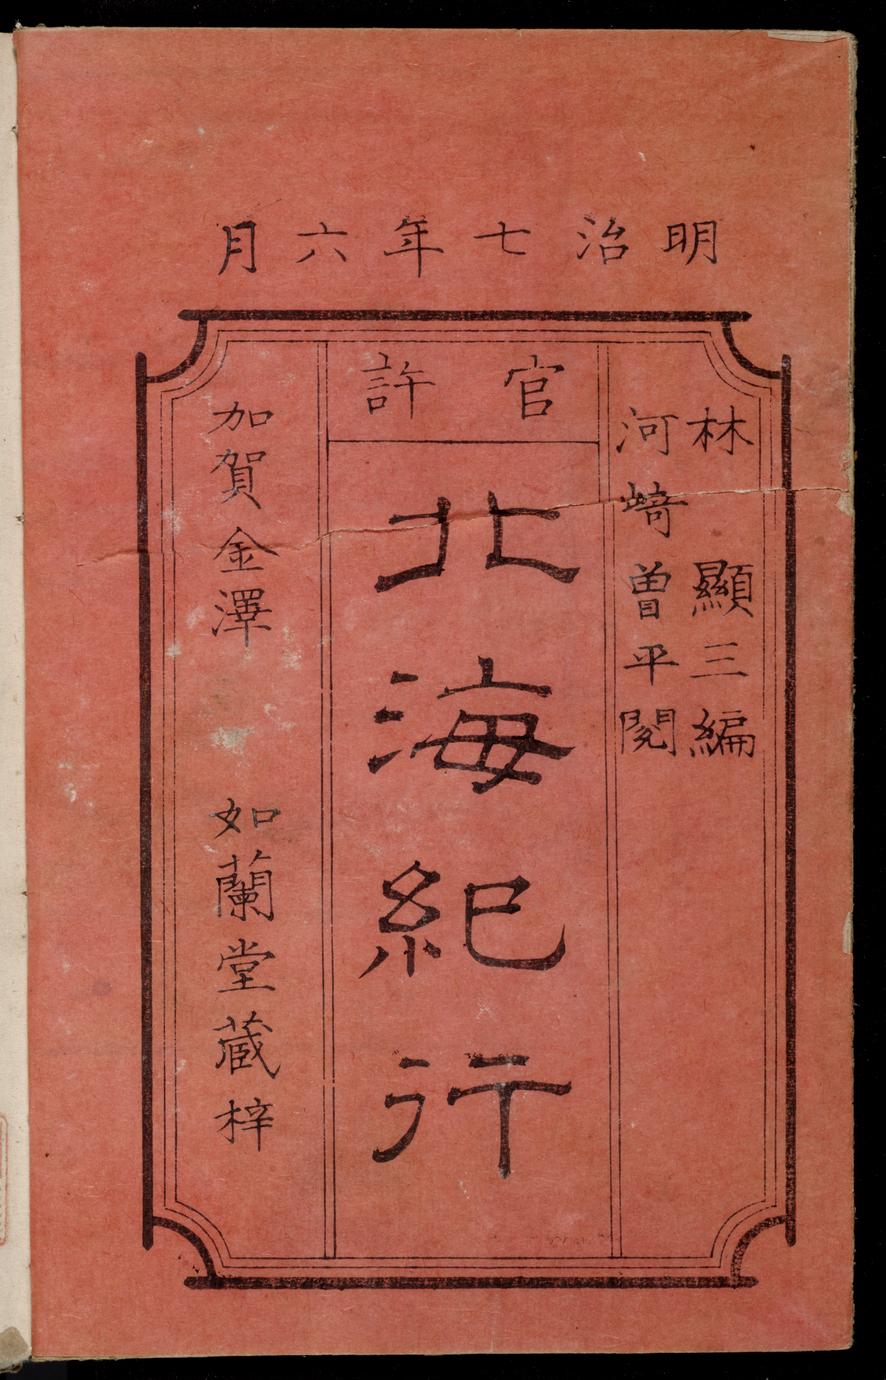 明治七年六月
官許
林 顯三編
河﨑曽平閱
北海紀行
加賀金澤 如蘭堂蔵梓